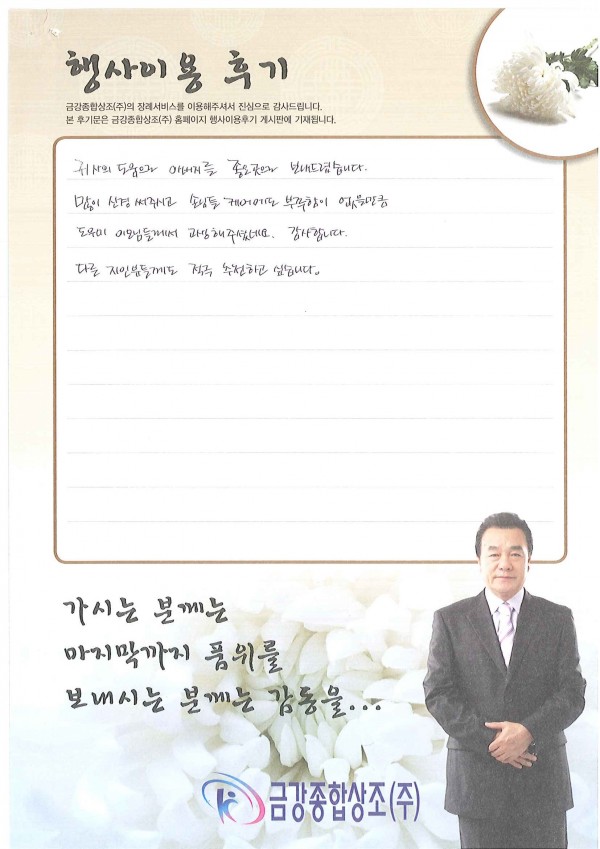 행사이용 후기
금강종합상조(주)의 장례서비스를 이용해주셔서 진심으로 감사드립니다.
본 후기문은 금강종합상조(주) 홈페이지 행사이용후기 게시판에 기재됩니다.
귀사의 도움으로 아버지를 좋은곳으로 보내드렸습니다.
많이 신경써주시고 손님들 케어에도 부족함이 없을만큼
도우미 이모님들께서 고생해주셨네요. 감사합니다.
다른 지인분들께도 적극 추천하고 싶습니다.
가시는 분께는
마지막까지 품위를
보내시는 분께는 감동을...
금강종합상조(주)